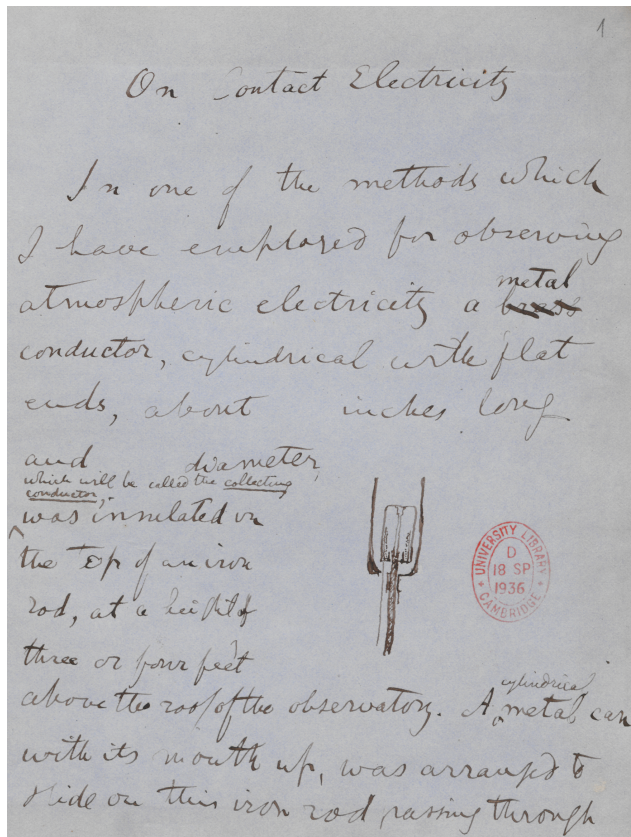 1
On Contact Electricity
In one of the methods which
I have employed for observing
atmospheric electricity a brass metal
conductor, cylindrical with flat
ends, about inches long
and diameter,
which will be called the collecting
conductor,
was insulated on
the top of an iron
rod, at a height of
three or four feet
above the roof of the observatory. A cylindrical metal can
with its mouth up, was arranged to
slide on this iron rod passing through
UNIVERSITY LIBRARY
D
18 SP
1936
CAMBRIDGE